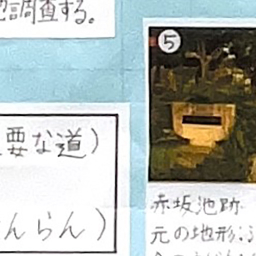 調査する。
⑤
要な道)
んらん)
赤坂池跡
元の地形